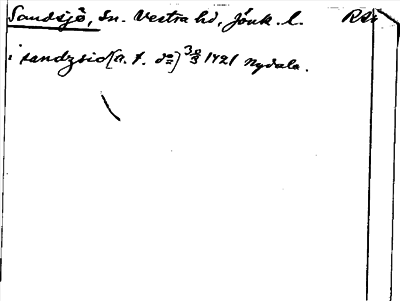 Sandsjö, Sn. Västra hd, Jönk. l.
i sandzsio [a. f. do] 30/3 1421 Nydala.